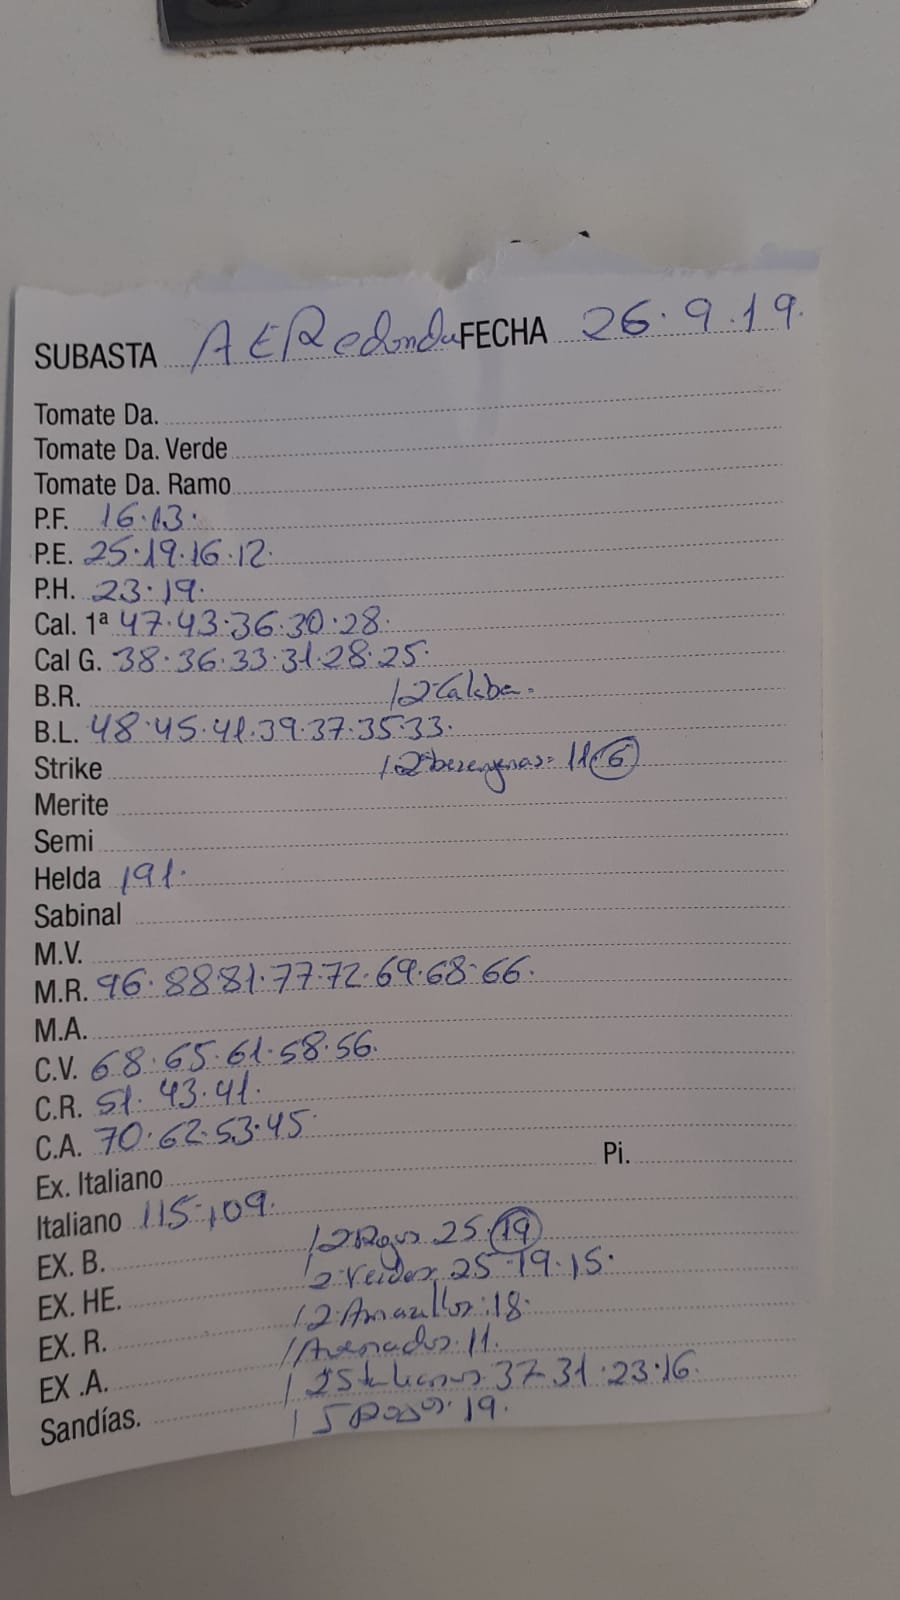 SUBASTA AERedonda FECHA 26.9.19.
Tomate Da.
Tomate Da. Verde
Tomate Da. Ramo
P.F. 16.13.
P.E. 25.19.16.12.
P.H. 23.19.
Cal. 1ª 47.43.36.30.28.
Cal G. 38.36.33.31.28.25.
B.R.
B.L. 48.45.41.39.37.35.33.
Strike 12ªberengenas= 11.6
Merite
Semi
Helda 191.
Sabinal
M.V.
M.R. 96.88 81.77.72.69.68.66.
M.A.
C.V. 68.65.61.58.56.
C.R. 51.43.41.
C.A. 70.62.53.45.
Ex. Italiano Pi.
Italiano 115.109.
EX. B. 25.19
EX. HE. 25.19.15.
EX. R. 18.
EX .A. 11.
37.31.23.16.
Sandías. 19.